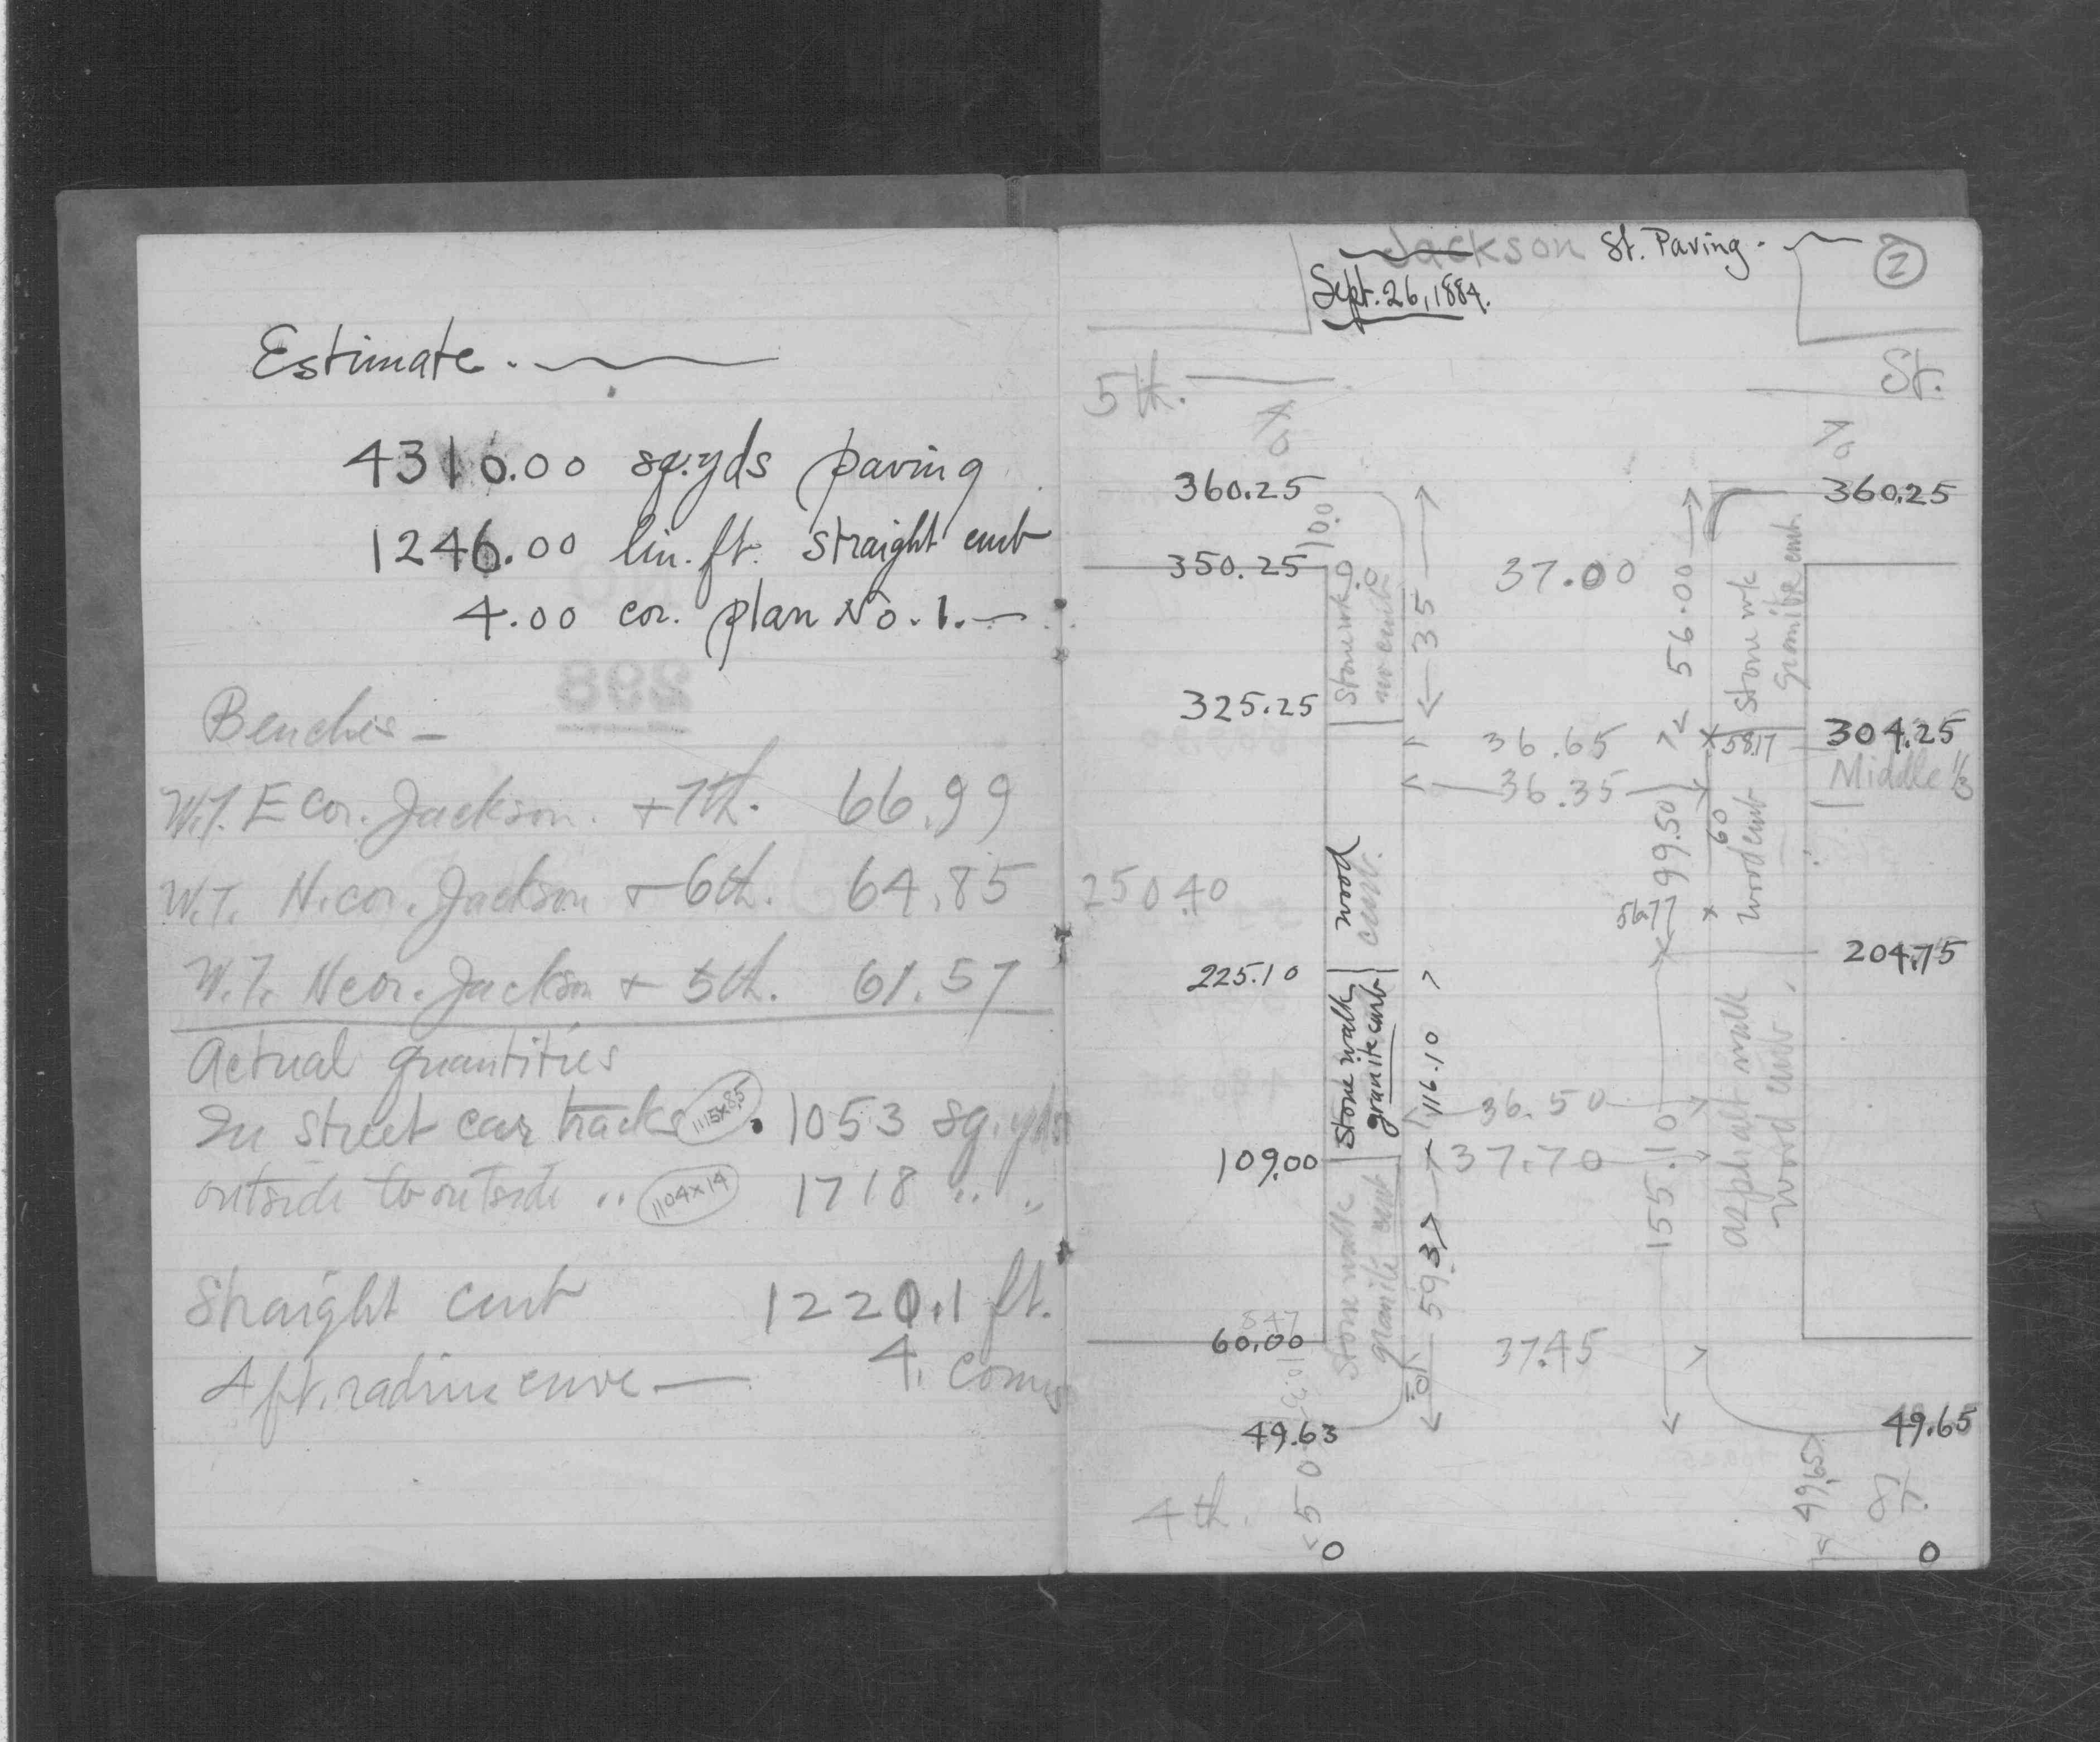 Estimate.
4310.00 sq.yds paving
1246.00 lin. ft. straight curb
4.00 cor. plan No. 1.—
Benches —
W.T. E cor. Jackson. + 7th. 66.99
W.T. N. cor. Jackson + 6th. 64.85
W.T. N cor. Jackson + 5th. 61.57
Actual quantities
In street car tracks 1115x8.5 . 1053 sq. yds
outside to outside .. 1104x14 1718 " "
Straight curb 1220.1 ft.
4 ft. radius curve — 4. corners
Jackson St. Paving.
2
Sept. 26, 1884.
5th. St.
360.25
360.25
10.0
350.25
37.00
35
56.00
Stone wk
no curb
Stone wk
Granite curb
325.25
36.65
58.17
304.25
36.35
Middle 1/3
99.50
60
wood curb
wood
curb.
250.40
56.77
204.75
225.10
Stone walk
granite curb
116.10
36.50
asphalt walk
wood curb.
109.00
37.70
155.10
Stone walk
granite curb
59.37
60.00
37.45
10
49.63
49.65
50
49.65
4th. St.
0
0